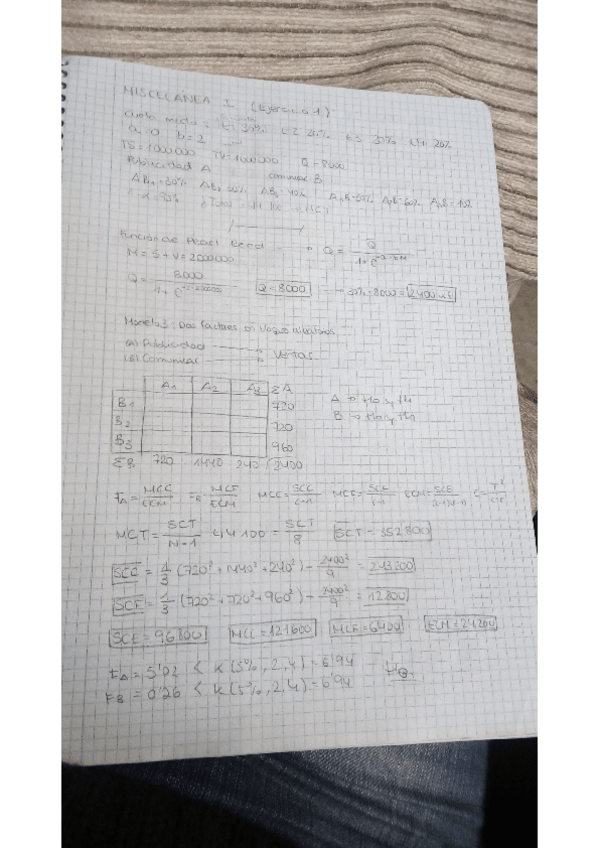 MISCELÁNEA I (Ejercicio 1)
a=0 b=2
TS=1000000 TV=1000000 Q=8000
Publicidad A comunicac B
AB1=30% AB2=30% AB3=40% A1B=30% A2B=60% A3B=10%
Función de Pearl Reed → Q = Q / 1+e
M = S+V = 2000000
Q = 8000 / 1+e Q=8000 → 30% · 8000 = 2400
Modelo 3: Dos factores
(A) Publicidad → Ventas
(B) Comunicac →
A1 A2 A3 ΣA
B1 720 A → H0 y H1
B2 720 B → H0 y H1
B3 960
ΣB 720 1440 240 2400
FA = MCC/ECM FB = MCF/ECM MCC = SCC/c-1 MCF = SCF/r-1 ECM = SCE/(c-1)(r-1)
MCT = SCT/N-1 44100 = SCT/8 SCT = 352800
SCC = 1/3 (720² + 1440² + 240²) - 2400²/9 = 243200
SCF = 1/3 (720² + 720² + 960²) - 2400²/9 = 12800
SCE = 96800 MCC = 121600 MCF = 6400 ECM = 24200
FA = 5'02 < K (5%, 2, 4) = 6'94 H0
FB = 0'26 < K (5%, 2, 4) = 6'94